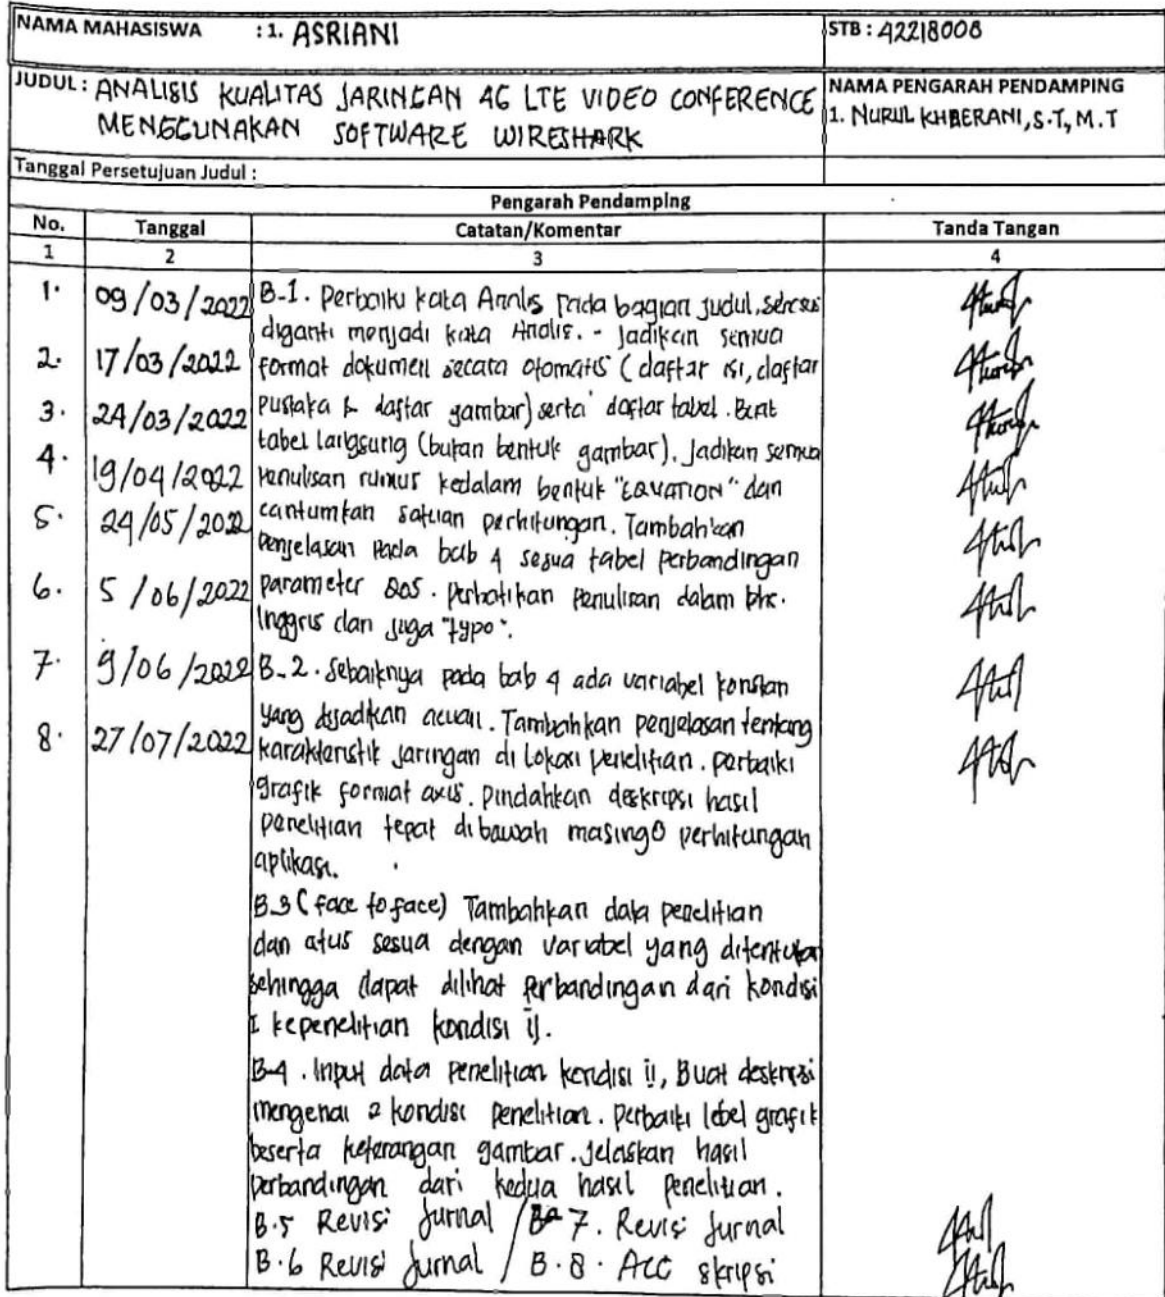 NAMA MAHASISWA : 1. ASRIANI
STB : 42218008
JUDUL : ANALISIS KUALITAS JARINGAN 4G LTE VIDEO CONFERENCE
MENGGUNAKAN SOFTWARE WIRESHARK
NAMA PENGARAH PENDAMPING
1. NURUL KHAERANI, S.T, M.T
Tanggal Persetujuan Judul :
Pengarah Pendamping
No. Tanggal Catatan/Komentar Tanda Tangan
1 2 3 4
1. 09/03/2022
2. 17/03/2022
3. 24/03/2022
4. 19/04/2022
5. 24/05/2022
6. 5/06/2022
7. 9/06/2022
8. 27/07/2022
B-1. Perbaiki kata Analis pada bagian judul,
diganti menjadi kata Analis. - Jadikan semua
format dokumen secara otomatis (daftar isi, daftar
pustaka & daftar gambar) serta daftar tabel. Buat
tabel langsung (bukan bentuk gambar). Jadikan semua
penulisan rumus kedalam bentuk "EQUATION" dan
cantumkan satuan perhitungan. Tambahkan
penjelasan pada bab 4 sesuai tabel perbandingan
parameter QOS. Perhatikan penulisan dalam bhs.
Inggris dan juga "typo".
B-2. Sebaiknya pada bab 4 ada variabel konstan
yang dijadikan acuan. Tambahkan penjelasan tentang
karakteristik jaringan di lokasi penelitian. perbaiki
grafik format axis. pindahkan deskripsi hasil
penelitian tepat dibawah masing2 perhitungan
aplikasi.
B.3 (face to face) Tambahkan data penelitian
dan atus sesuai dengan variabel yang ditentukan
sehingga dapat dilihat perbandingan dari kondisi
I kepenelitian kondisi ii.
B-4. Input data penelitian kondisi ii, Buat deskripsi
mengenai 2 kondisi penelitian. perbaiki label grafik
beserta keterangan gambar. jelaskan hasil
perbandingan dari kedua hasil penelitian.
B.5 Revisi Jurnal / B 7. Revisi Jurnal
B.6 Revisi Jurnal / B.8. ACC skripsi